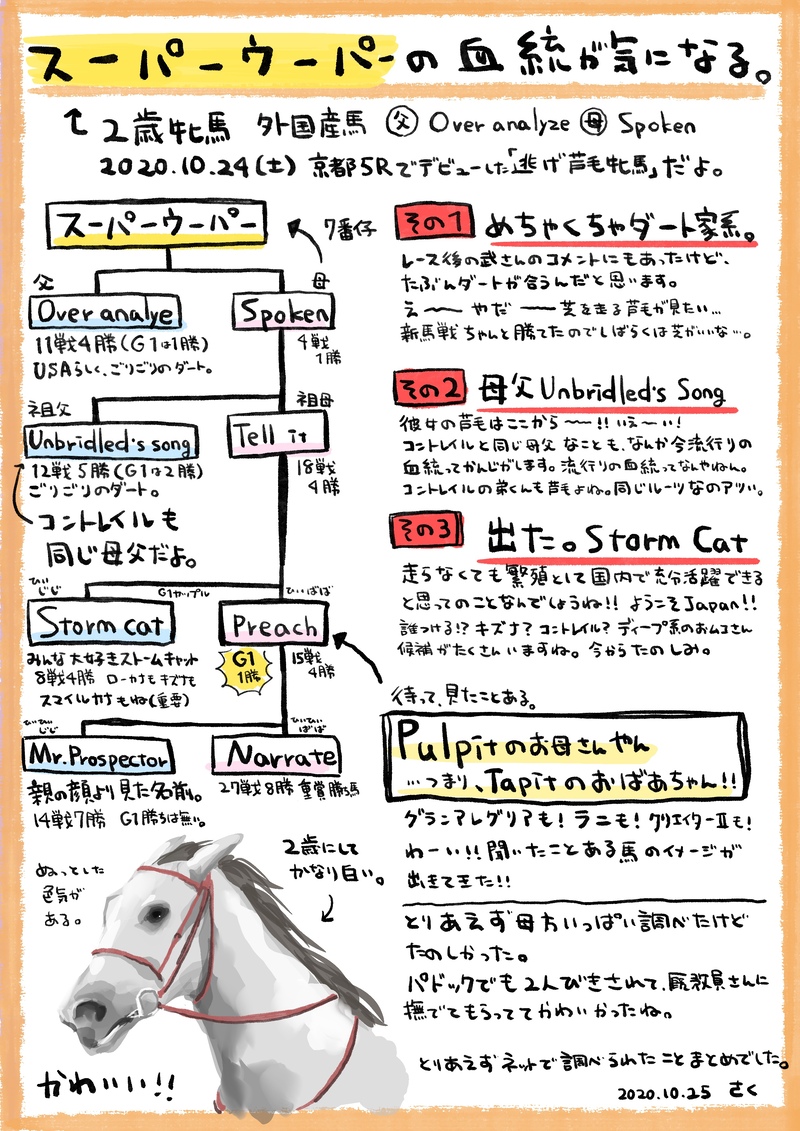 スーパーウーパーの血統が気になる。
2歳牝馬 外国産馬 父 Over analyze 母 Spoken
2020.10.24(土) 京都5Rでデビューした「逃げ芦毛牝馬」だよ。
スーパーウーパー
7番仔
父
母
Over analye
Spoken
11戦4勝(G1は1勝)
USAらしく、ごりごりのダート。
4戦
1勝
祖父
祖母
Unbridled's song
Tell it
12戦5勝(G1は2勝)
ごりごりのダート。
18戦
4勝
コントレイルも
同じ母父だよ。
ひいじじ
G1カップル
ひいばば
Storm cat
Preach
みんな大好きストームキャット
8戦4勝 ローカナもキズナも
スマイルカナもね(重要)
G1
1勝
15戦
4勝
ひいひいじじ
ひいひいばば
Mr.Prospector
Narrate
親の顔より見た名前。
14戦7勝 G1勝ちは無い。
27戦8勝 重賞勝ち馬
ぬっとした
色気が
ある。
2歳にして
かなり白い。
かわいい!!
その1 めちゃくちゃダート家系。
レース後の武さんのコメントにもあったけど、
たぶんダートが合うんだと思います。
え〜〜 やだ 〜〜芝を走る芦毛が見たい…
新馬戦ちゃんと勝てたのでしばらくは芝がいいな…。
その2 母父Unbridled's Song
彼女の芦毛はここから〜〜!! いぇ〜い!
コントレイルと同じ母父なことも、なんか今流行りの
血統ってかんじがします。流行りの血統ってなんやねん。
コントレイルの弟くんも芦毛よね。同じルーツなのアツい。
その3 出た。Storm Cat
走らなくても繁殖として国内で充分活躍できる
と思ってのことなんでしょうね!! ようこそJapan!!
誰つける!? キズナ? コントレイル? ディープ系のおムコさん
候補がたくさんいますね。今からたのしみ。
待って、見たことある。
Pulpitのお母さんやん
…つまり、Tapitのおばあちゃん!!
グランアレグリアも! ラニも! クリエイターⅡも!
わーい!! 聞いたことある馬のイメージが
出きてきた!!
とりあえず母方いっぱい調べたけど
たのしかった。
パドックでも2人びきされて、厩務員さんに
撫でてもらっててかわいかったね。
とりあえずネットで調べられたことまとめでした。
2020.10.25 さく